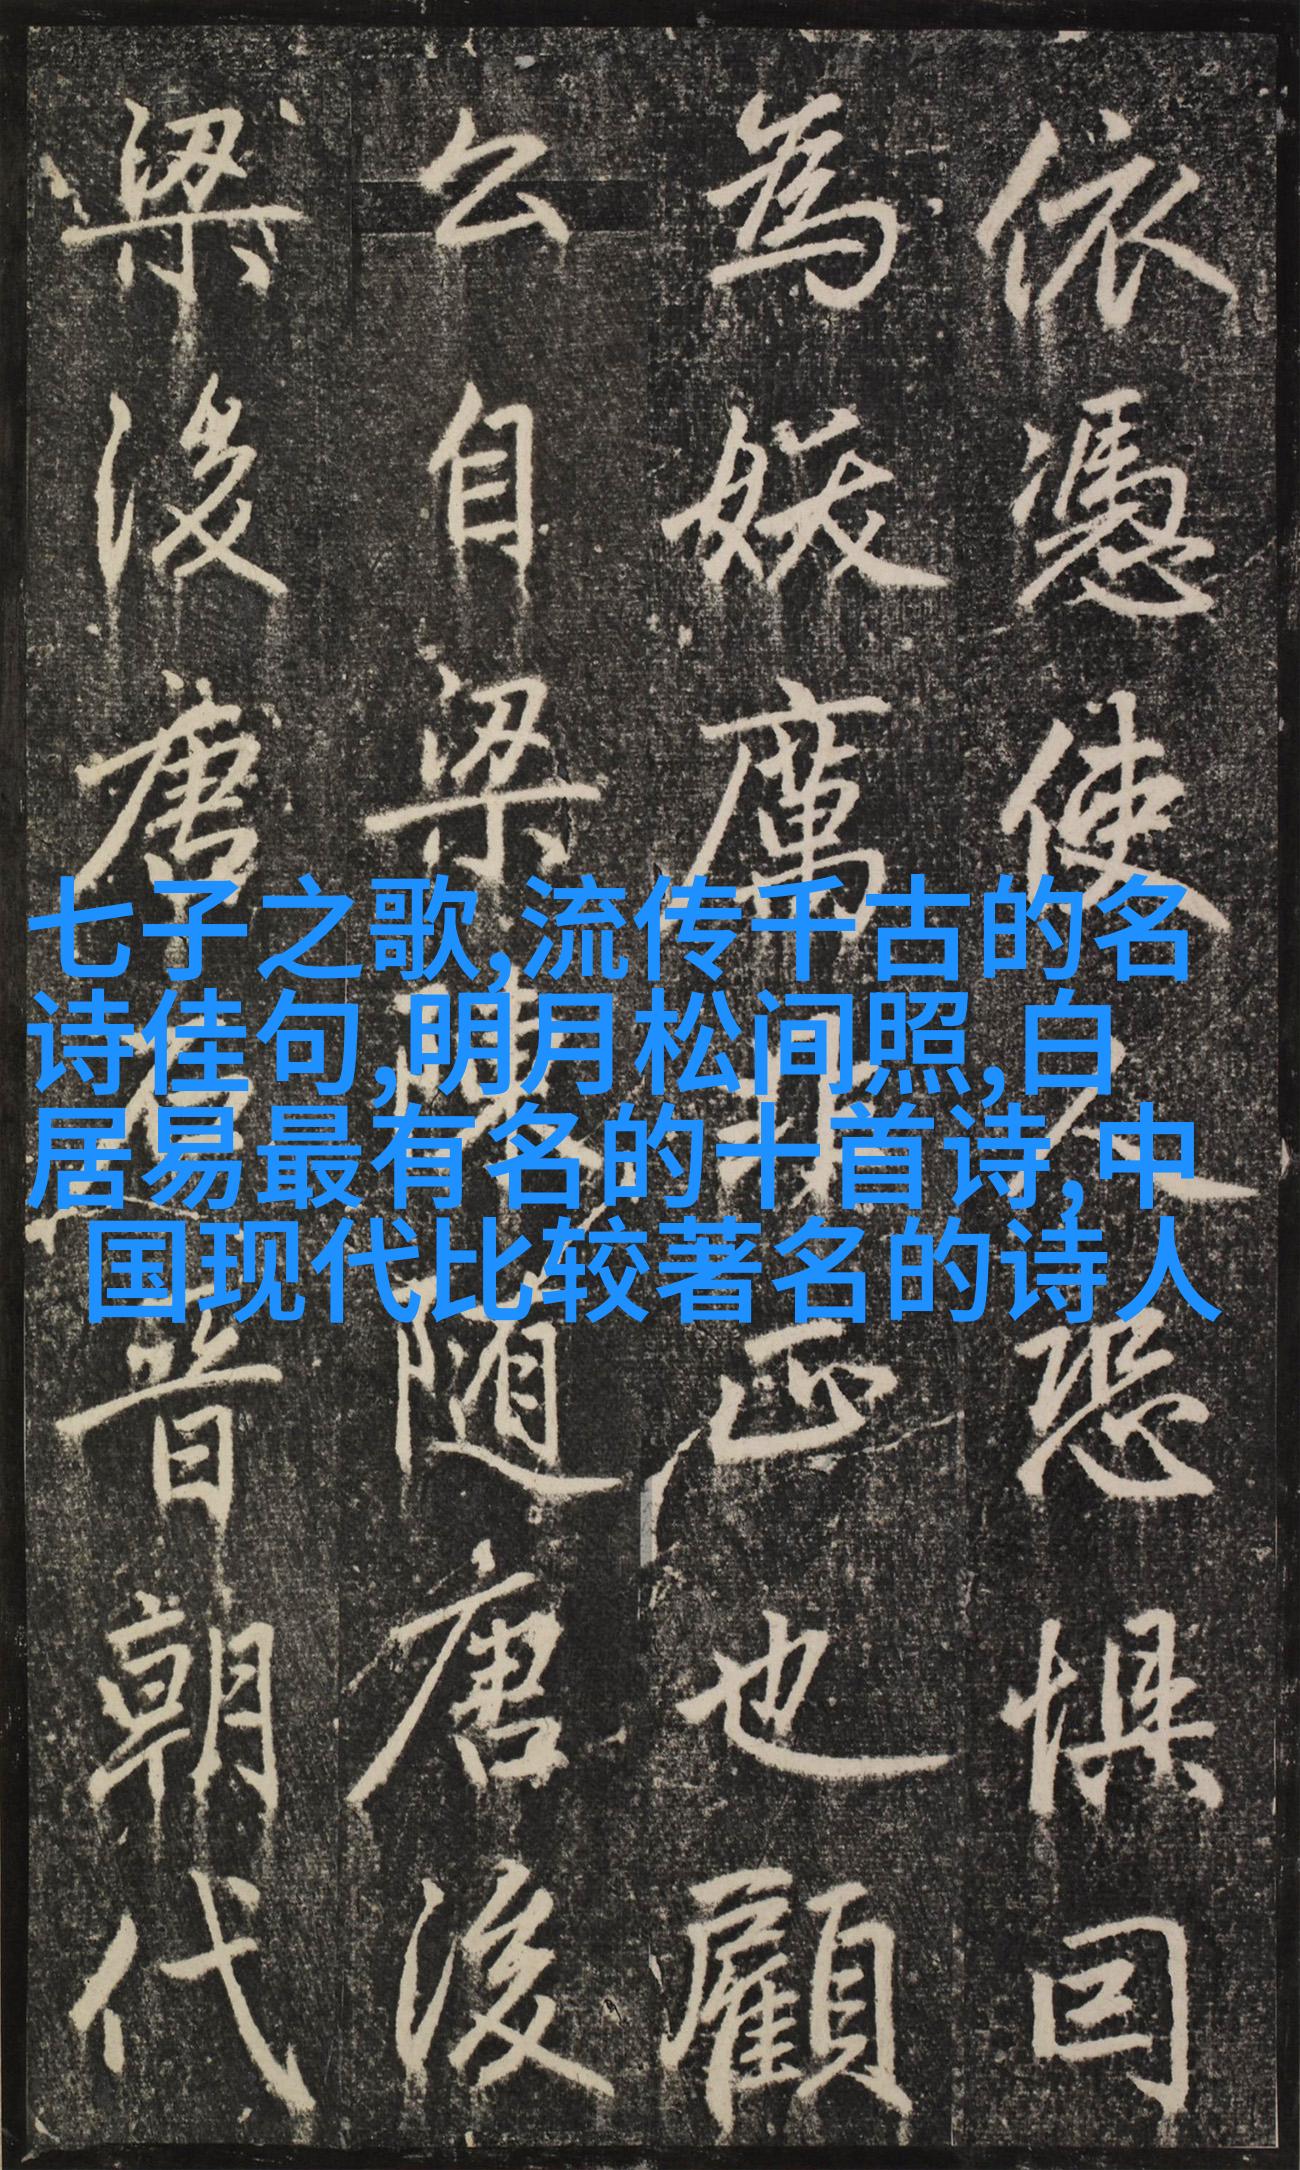 依憑使人恐惧
為妖厲正也顧
公自梁陳隨唐後
梁後唐石晋朝代
七子之歌,流传千古的名
诗佳句,明月松间照,白
居易最有名的十首诗,中
国现代比较著名的诗人